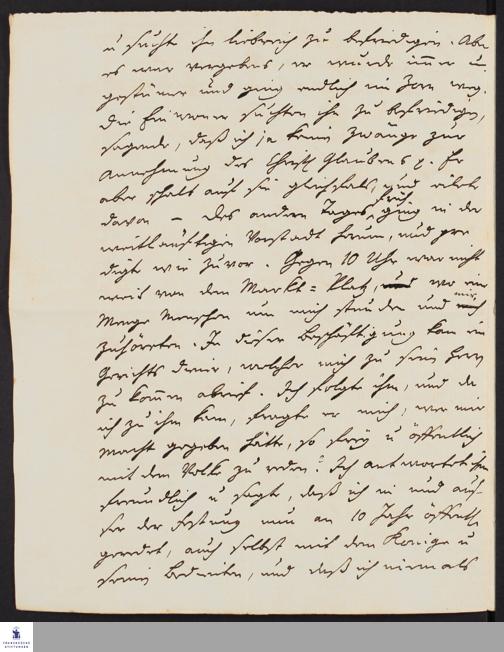 u suchte ihn liebreich zu befriedigen. Aber
es war vergebens, er wurde immer un-
gestümer und ging endlich im Zorn weg.
Die Einwoner suchten ihn zu befriedigen,
sagende, daß ich ja keine zwänge zur
Annehmung des Christl Glaubens p. Er
aber schalt auf sie gleichfals, und
davon – des andern Tages früh ging in der
weitläuftigen Vorstadt herum, und pre
digte wie zuvor. Gegen 10 Uhr war nicht
weit von dem Markt=Platz, wo eine
Menge Menschen um mich stunden und mir
zuhöreten. In dieser Beschäftigung kam ein
Gerichts diener, welcher mich zu sein Herrn
zu kommen abrief. Ich folgte ihm, und da
ich zu ihm kam, fragte er mich, wer mir
Macht gegeben hätte, so frey u öffentlich
mit dem Volke zu reden? Ich antwortete ihm
freundlich u sagte, daß ich in und auf-
ser der Festung nun an 10 Jahre öffentl
geredet, auch selbst mit dem Könige u
seinen Bedienten, und daß ich niemals
FRANCKESCHE
STIFTUNGEN